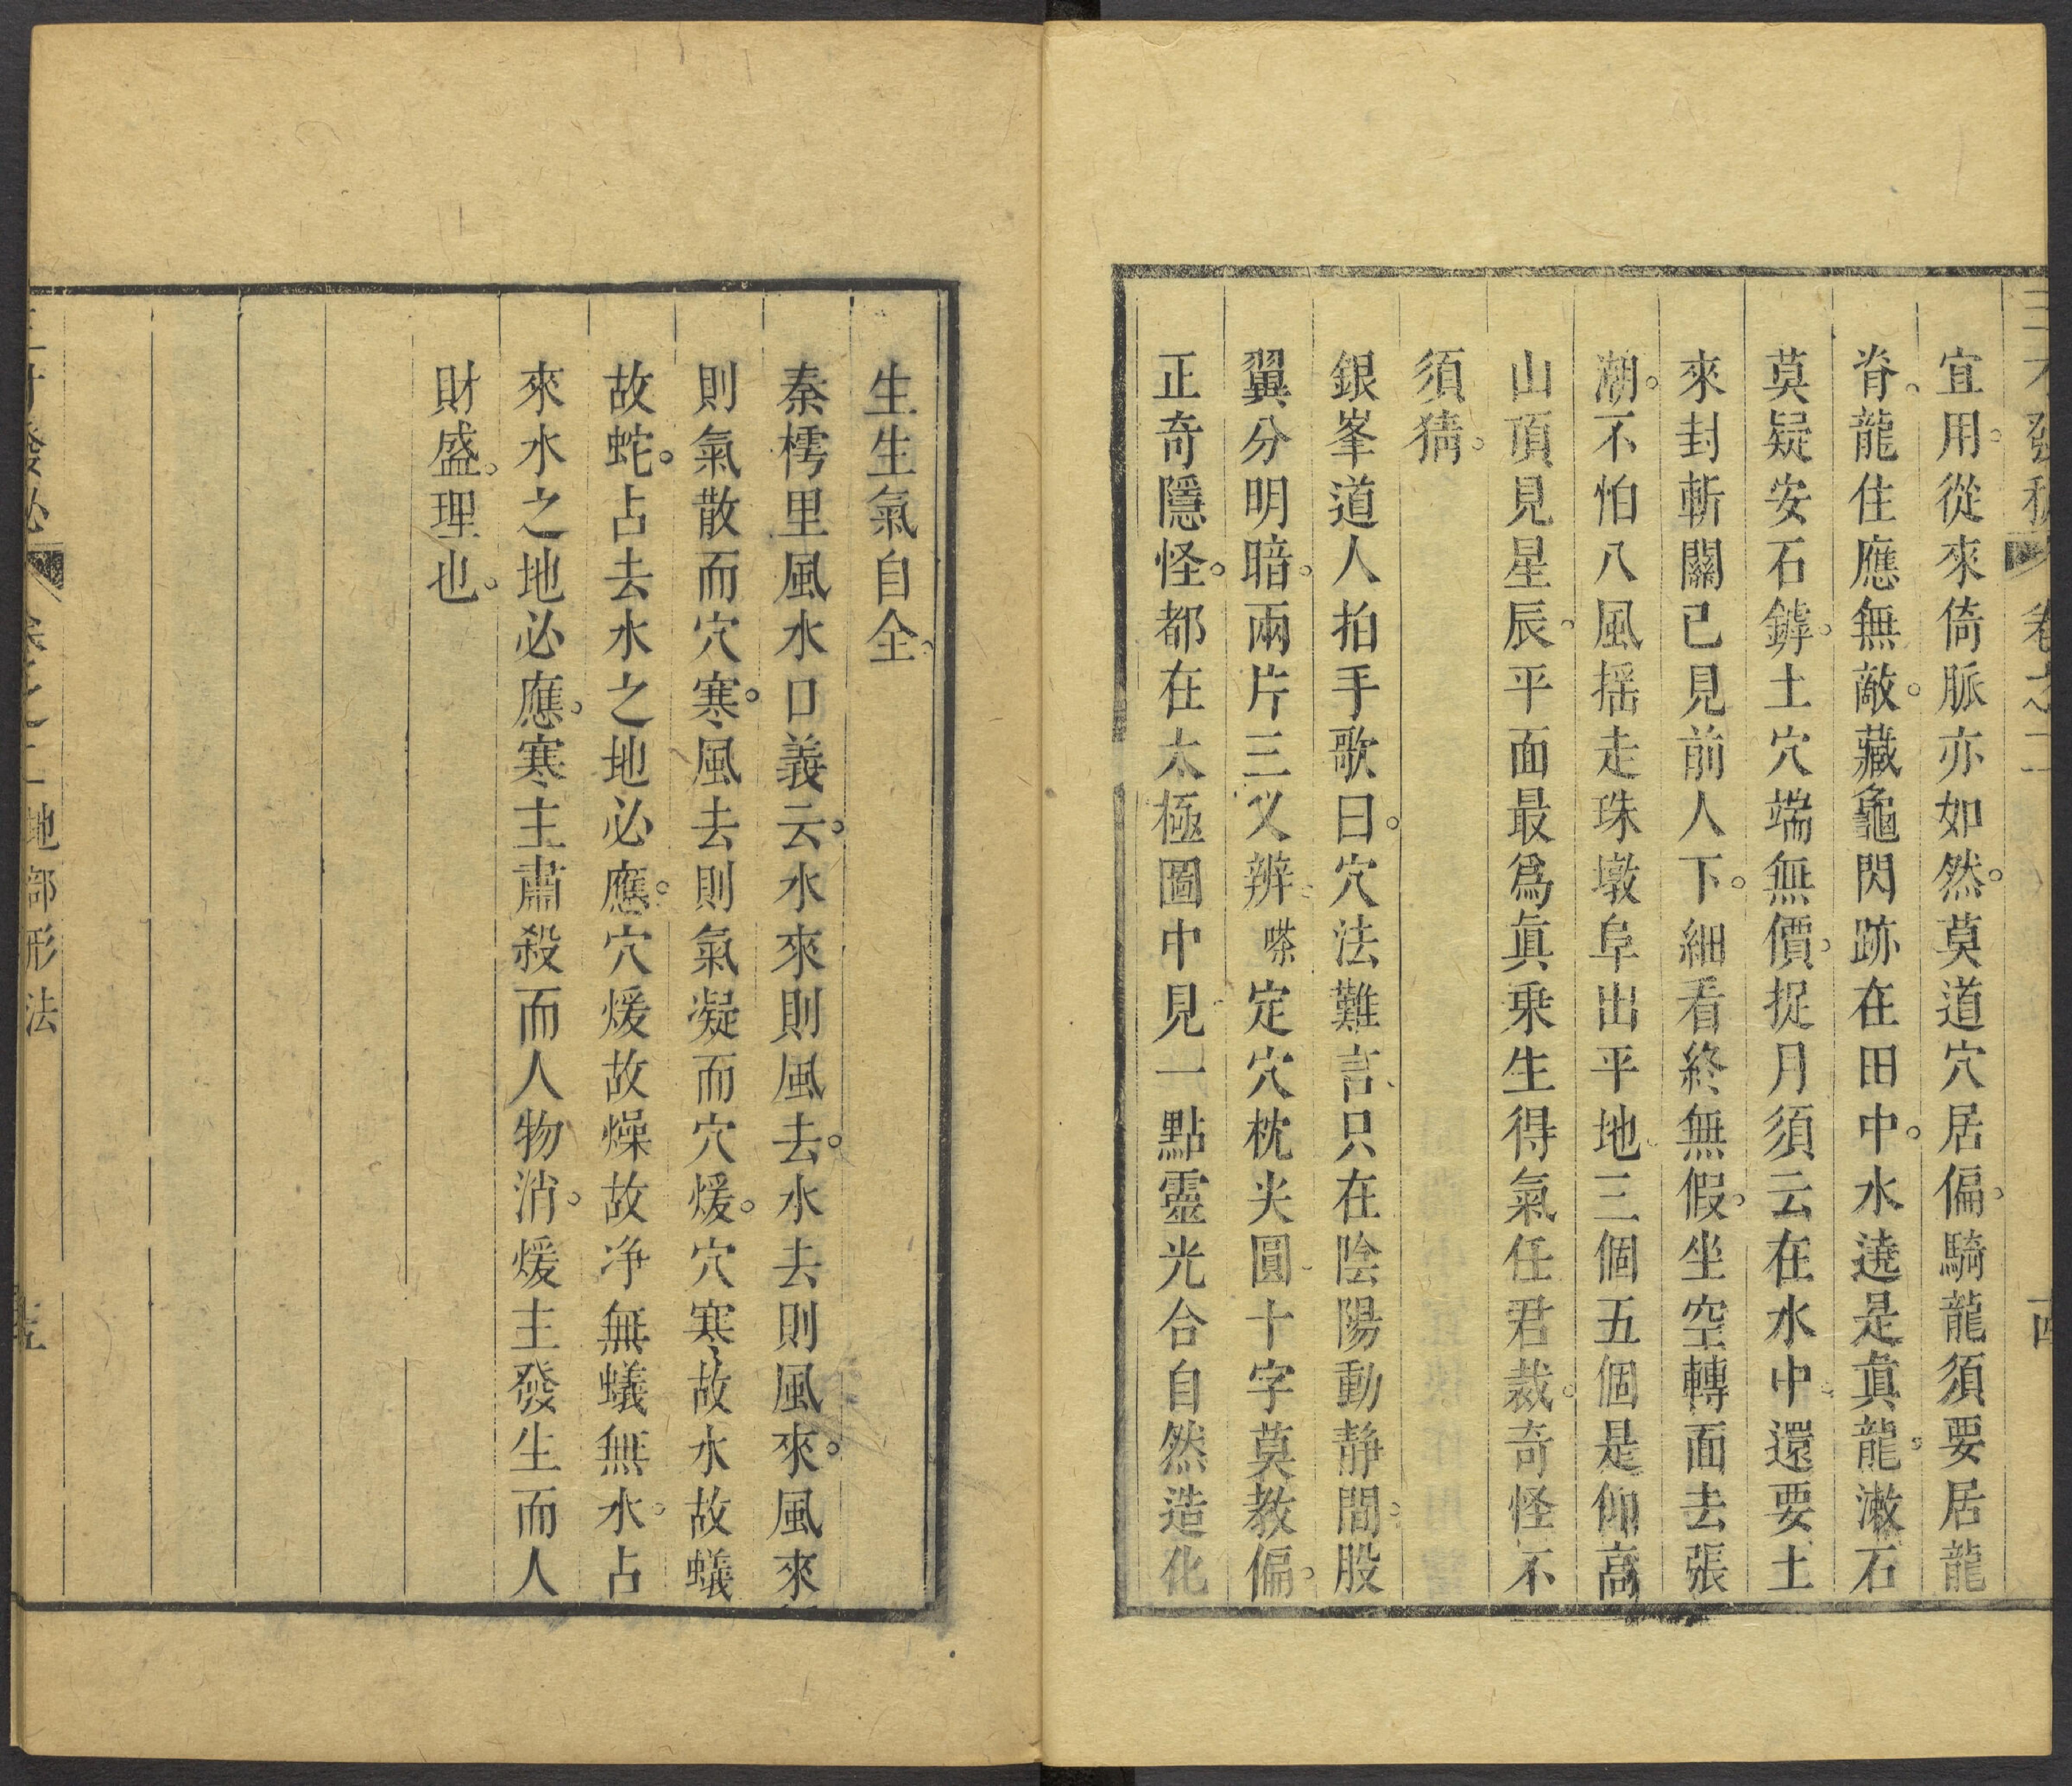 宜用。從來倚脈亦如然。莫道穴居偏。騎龍須要居龍
脊。龍住應無敵。藏龜閃跡在田中。水遶是眞龍。漱石
莫疑安石罅。土穴端無價。捉月須云在水中。還要土
來封斬關已見前人下。細看終無假。坐空轉面去張
潮。不怕八風揺走珠墩阜出平地。三個五個是仰高
山頂見星辰。平面最爲眞乗生得氣任君裁。奇怪不
須猜。
銀峯道人拍手歌曰。穴法難言。只在陰陽動靜間。股
翼分明暗。兩片三义辨。嗏定穴枕尖圓。十字莫教偏。
正奇隱怪。都在太極圖中見。一點靈光合自然造化
生生氣自全。
秦樗里風水口義云。水來則風去。水去則風來。風來
則氣散而穴寒。風去則氣凝而穴煖。穴寒故水故蟻
故蛇。占去水之地必應。穴煖故燥故净無蟻無水。占
來水之地必應。寒主肅殺而人物消。煖主發生而人
財盛。理也。
卷之二 地部形法